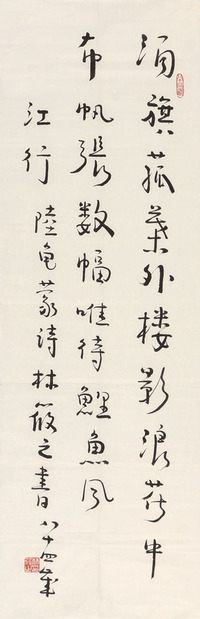 酒旗菰葉外楼影浪花中
布帆張数幅唯待鯉魚风
江行 陸龟蒙诗 林筱之書 八十四歲